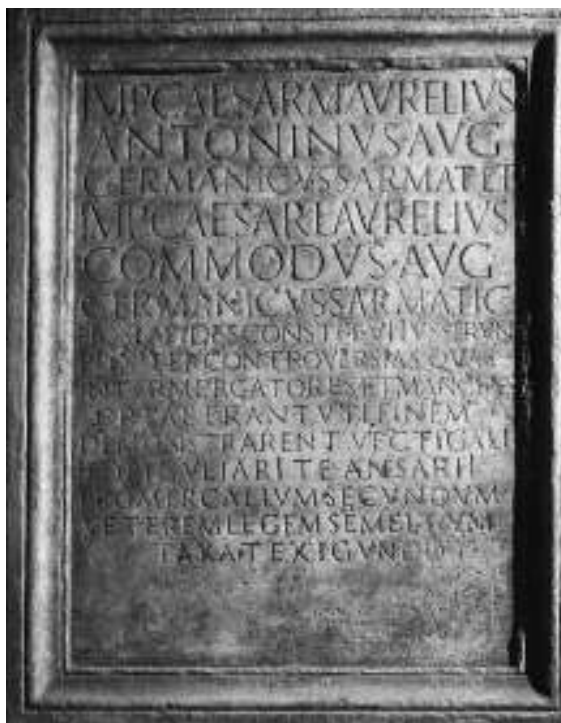 IMP CAESAR M AVRELIVS
ANTONINVS AVG
GERMANICVS SARMAT ET
IMP CAESAR L AVRELIVS
COMMODVS·AVG
GERMANICVS SARMATIC
LAPIDES CONSTITVI IVSSERVN
CONTROVERSIAS QVAE
INTER MERCATORES ET MANCIPES
ORTAE ERANT VTI FINEM
DEMONSTRARENT VECTIGALI
ANSARII
PROMERCALIVM SECVNDVM
VETEREM LEGEM SEMEL DVM
TAXAT EXIGVNDO